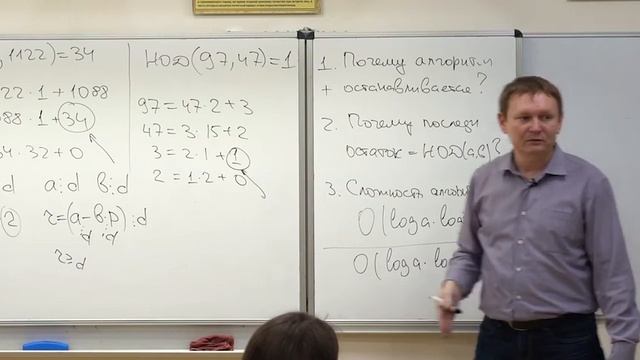 , 1122)=34
22·1+1088
088·1+34
34·32+0
d a⋮d b⋮d
2 r=(a-b·p)⋮d
⋮d ⋮d
r⋮d
НОД(97,47)=1
97=47·2+3
47=3·15+2
3=2·1+1
2=1·2+0
1. Почему алгоритм
+ останавливается?
2. Почему последн
остаток=НОД(a,b)?
3. Сложность алгори
O(log a·log
O(log a·lo